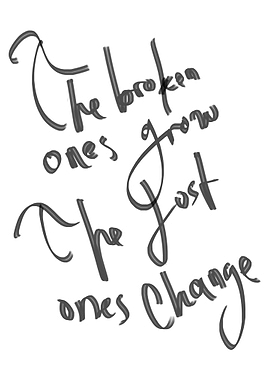 The broken
ones grow
The Lost
ones Change